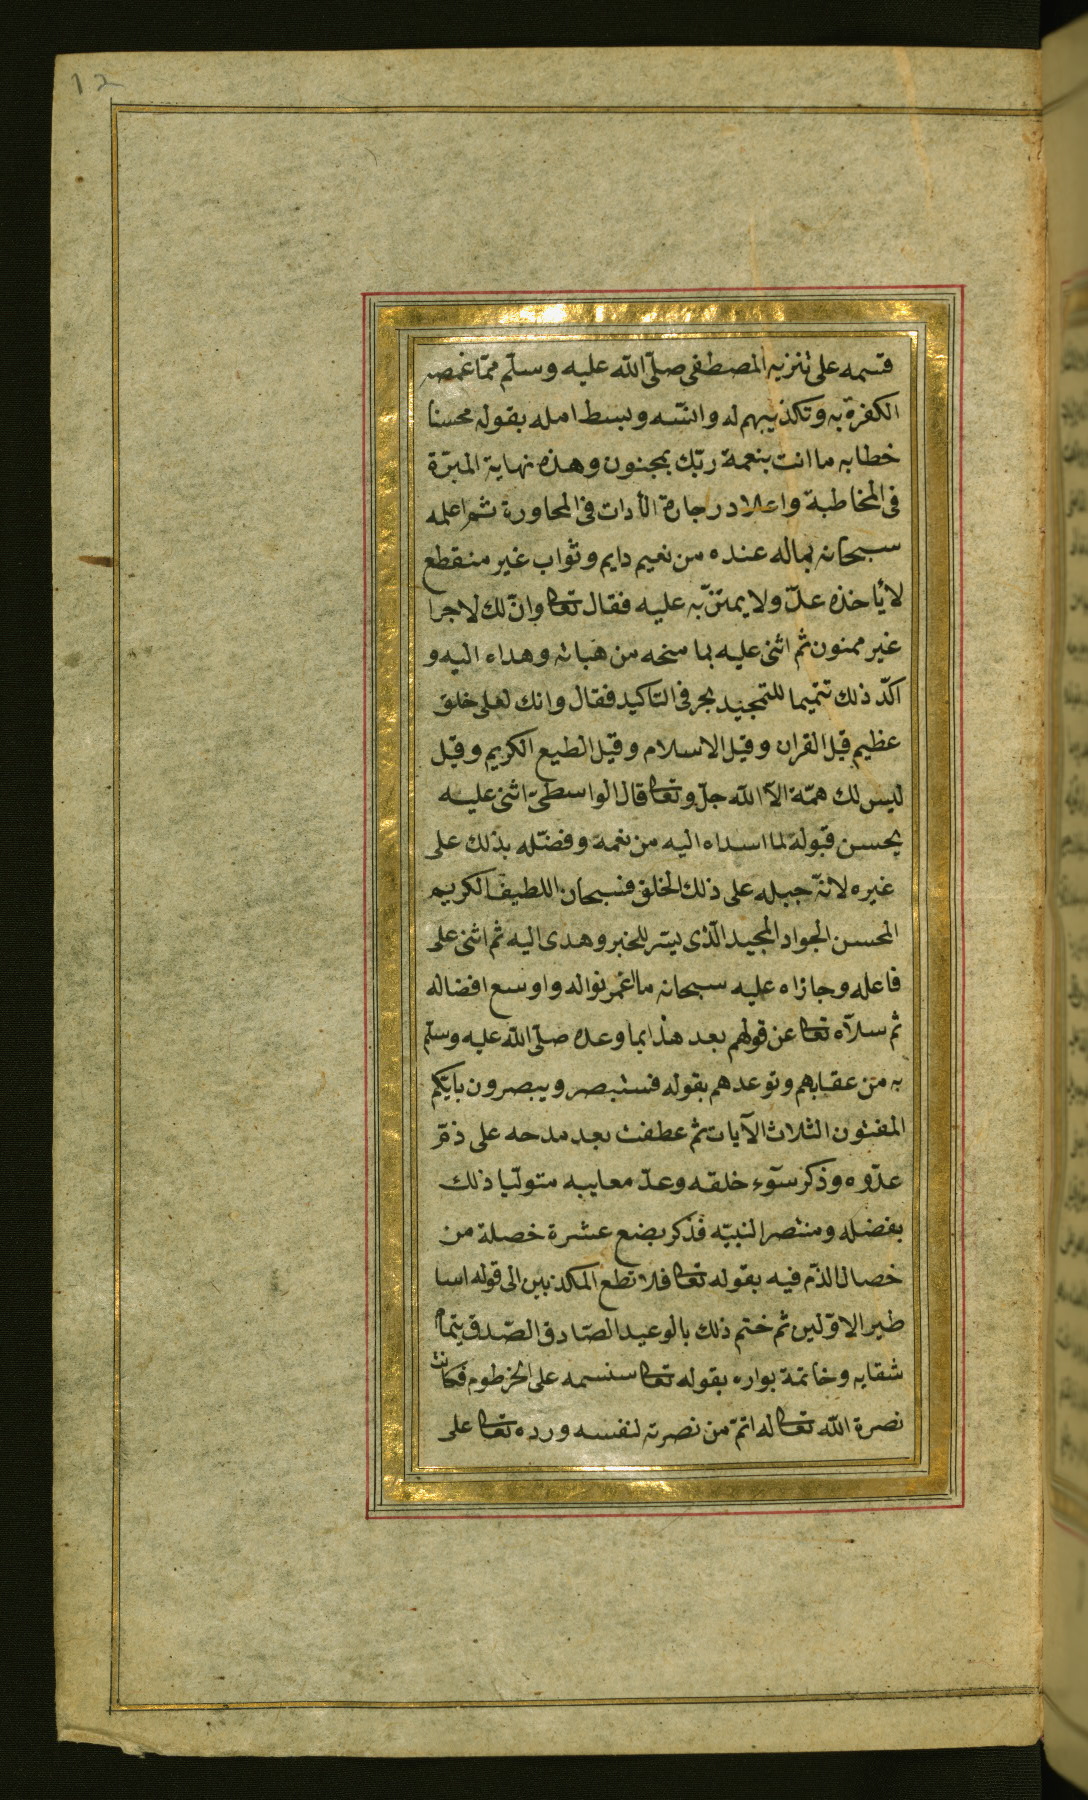 12
قسمه على تنزيه المصطفى صلّى اللّه عليه وسلّم ممّا غمصه
الكفرة به وتكذيبهم له وانسه وبسط امله بقوله محسنا
خطابه ما انت بنعمة ربّك بمجنون وهذه نهاية المبرّة
فى المخاطبة واعلا درجات الأداب فى المحاورة ثم اعلمه
سبحانه بماله عنده من نعيم دايم وثواب غير منقطع
لا يأخذه عدّ ولا يمتنّ به عليه فقال تعا وانّ لك لاجرا
غير ممنون ثم اثنى عليه بما منحه من هباته وهداه اليه و
اكّد ذلك تتميما للتمجيد بحرفى التاكيد فقال وانك لعلى خلق
عظيم قيل القران وقيل الاسلام وقيل الطبع الكريم وقيل
ليس لك همّة الاّ اللّه جلّ وتعا قال الواسطىّ اثنى عليه
بحسن قبوله لما اسداه اليه من نعمة وفضّله بذلك على
غيره لانّه جبله على ذلك الخلق فسبحان اللطيف الكريم
المحسن الجواد المجيد الّذى يسّر للخير وهدى اليه ثم اثنى على
فاعله وجازاه عليه سبحانه ما اغمر نواله واوسع افضاله
ثم سلاّه تعا عن قولهم بعد هذا بما وعده صلّى اللّه عليه وسلّم
به من عقابهم وتوعدهم بقوله فستبصر ويبصرون بايّكم
المفتون الثلاث الآيات ثم عطفت بعد مدحه على ذمّ
عدّوه وذكر سوٓء خلقه وعدّ معايبه متوليا ذلك
بفضله ومنتصرا لنبيّه فذكر بضع عشرة خصلة من
خصال الذّم فيه بقوله تعا فلا تطع المكذبين الى قوله اسا
طير الاوّلين ثم ختم ذلك بالوعيد الصّادق الصّدق بتمام
شقايه وخاتمة بواره بقوله تعا سنسمه على الخرطوم فكانت
نصرة اللّه تعا له اتمّ من نصرته لنفسه ورده تعا على